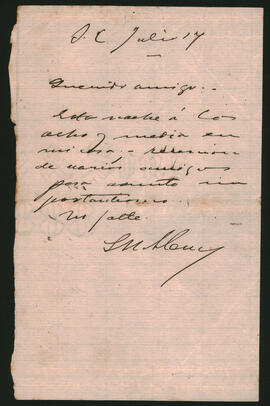 S. C. Julio 17
Querido amigo.-
Esta noche á las
ocho y media en
mi casa.- reunion
de varios amigos
para asunto im
portantísimo.
No falte.